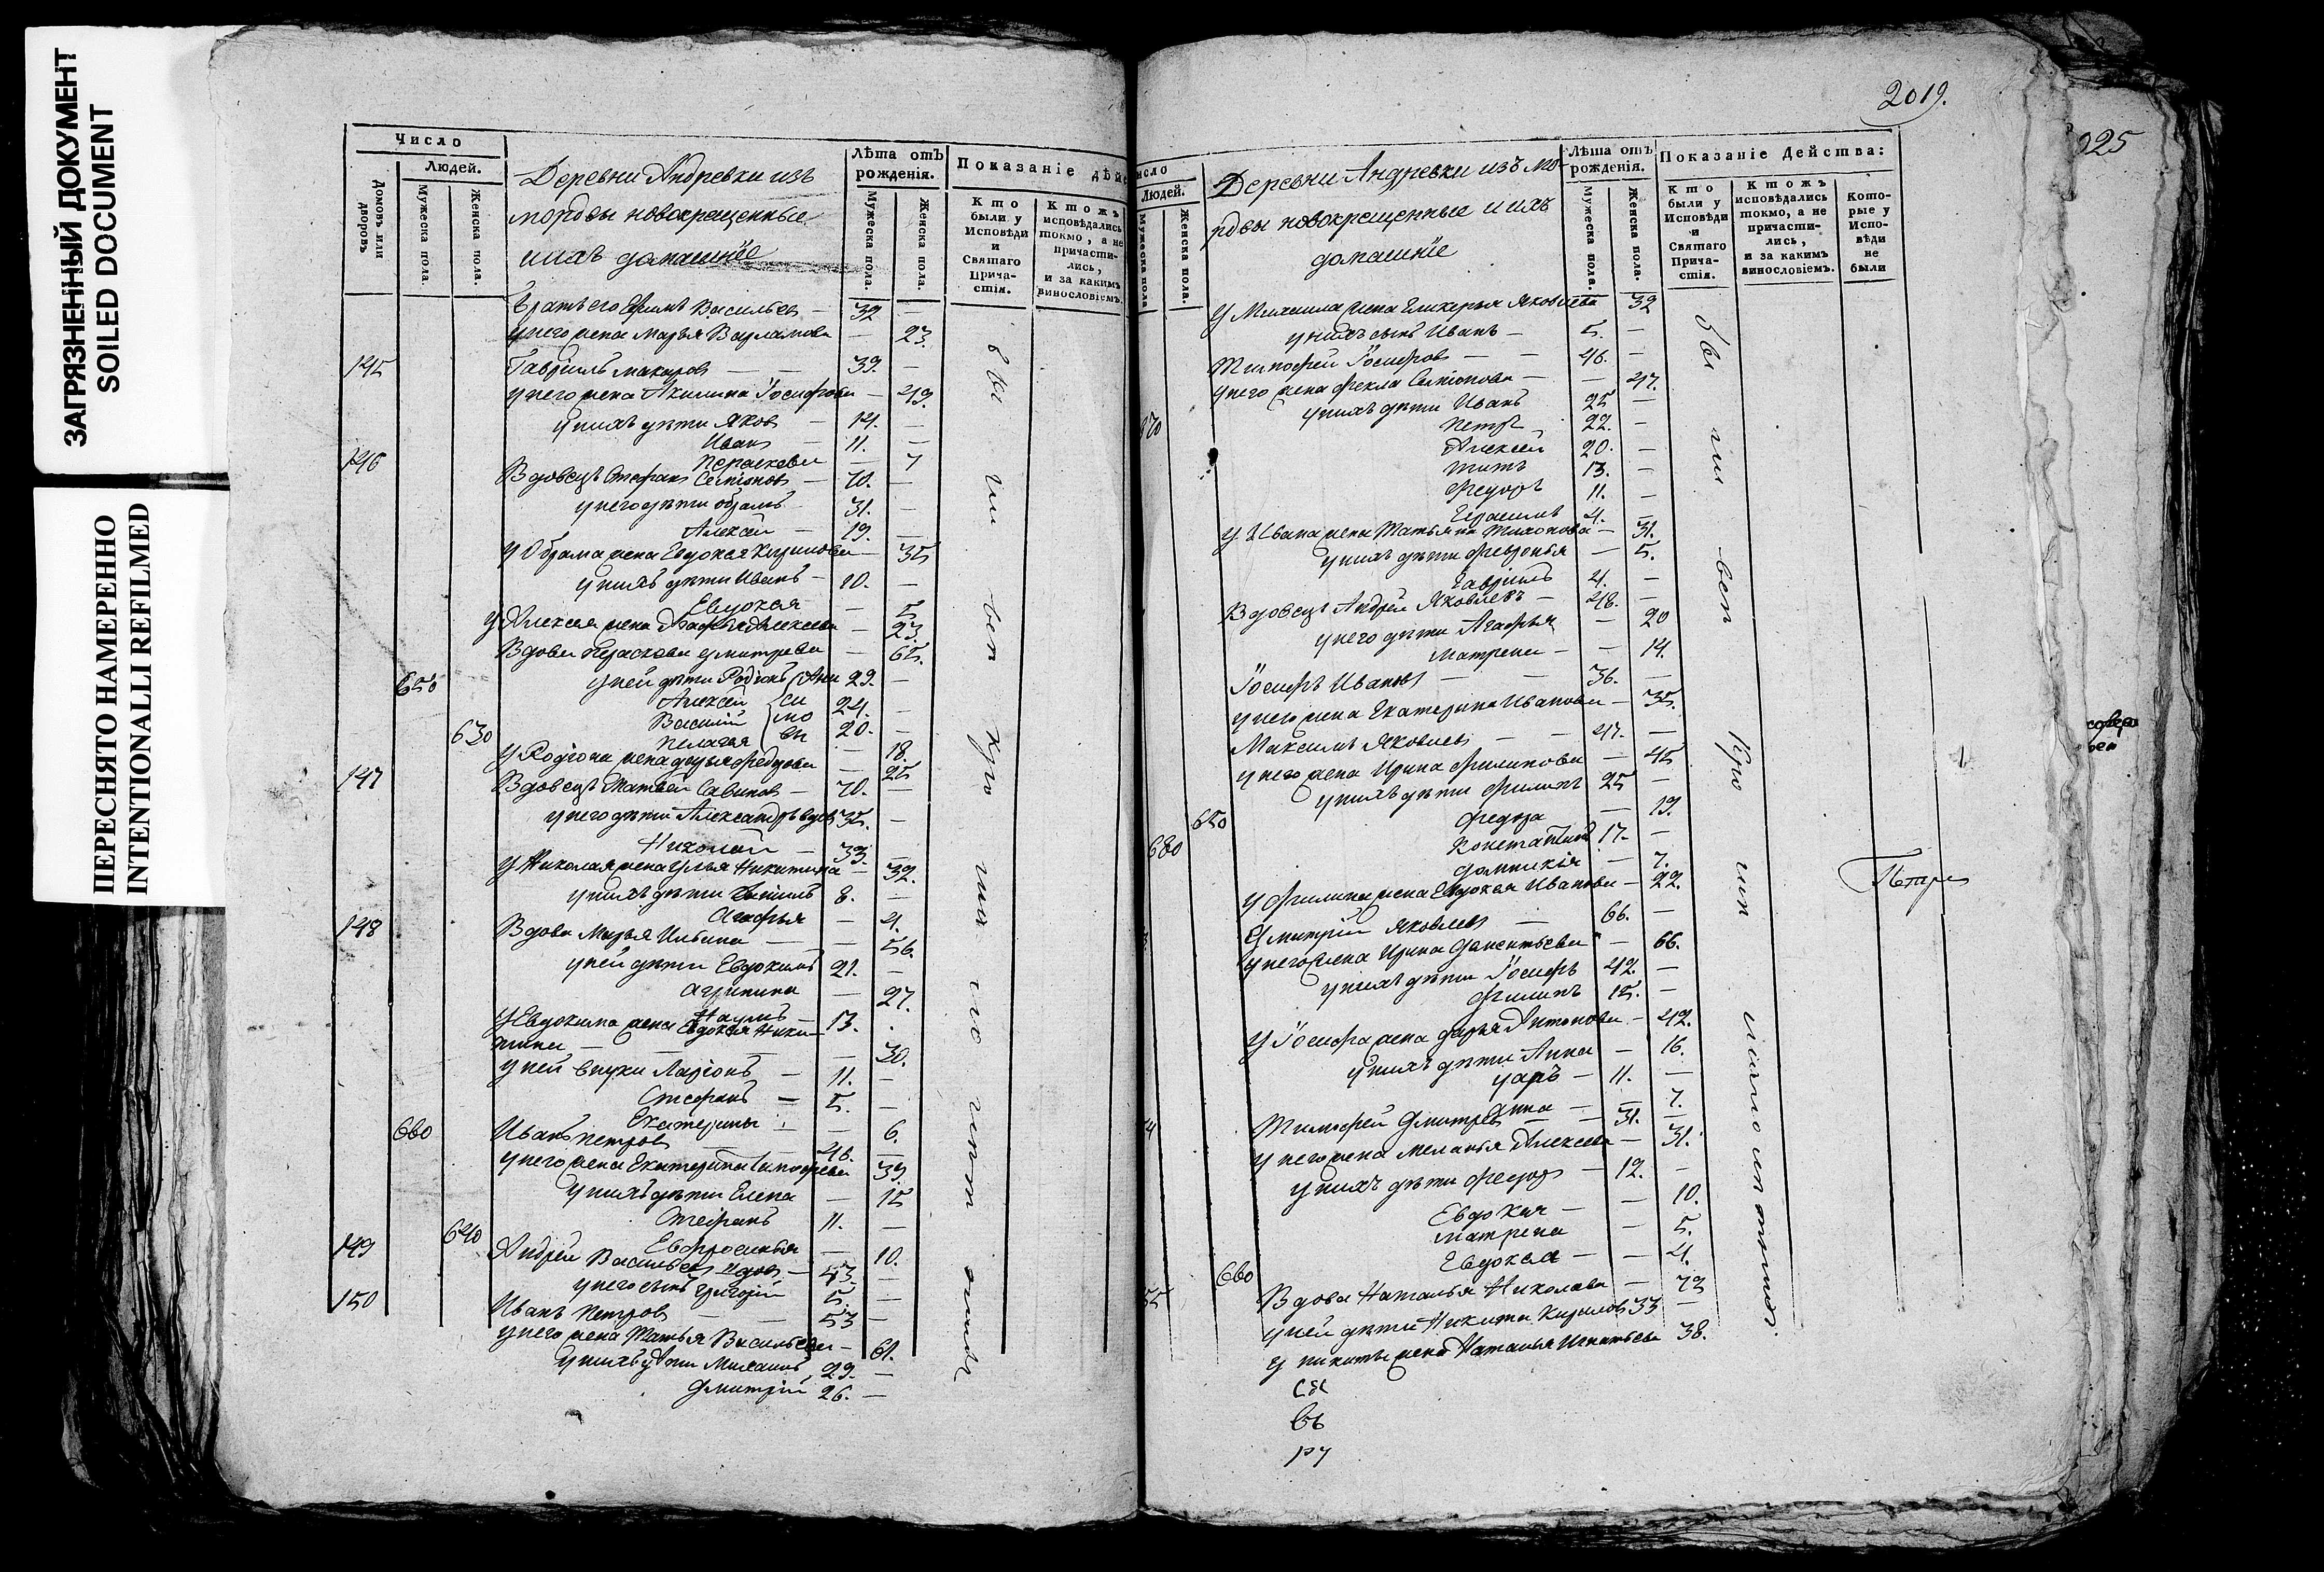 ЗАГРЯЗНЕННЫЙ ДОКУМЕНТ
SOILED DOCUMENT
ПЕРЕСНЯТО НАМЕРЕННО
INTENTIONALLI REFILMED
Число
Людей.
Домовъ или дворовъ
Мужеска пола.
Женска пола.
Деревни Андревки изъ
мордвы новокрещенные
и ихъ домашнïе
Лѣта отъ рожденiя.
Мужеска пола.
Женска пола.
Показанiе дѣйс
Кто были у Исповѣди и Святаго Причастiя.
Ктожъ исповѣдались токмо, а не причастились, и за какимъ винословiемъ.
братъ его Ефимъ Васильевъ — 32 —
у него жена Марья Варламова — 23.
145 Гаврiилъ Макаровъ — 39. —
у него жена Акилина Iосифова — 49.
у нихъ дѣти Яковъ — 14. —
Иванъ — 11. —
Пераскева — 7
146 Вдовецъ Стефанъ Семiоновъ — 70. —
у него дѣти Обрамъ 31. —
Алексей — 19. —
у Обрама жена Евдокея Кирилова — 35
у нихъ дѣти Иванъ — 10. —
Евдокея — 5
у Алексея жена Агафья Алексеева — 23.
Вдова Пераскева Дмитрева — 65.
650 у ней дѣти Родiонъ 29. —
Алексей 24. —
Василiй 20. —
630 Пелагея — 18.
у Родiона жена Дарья Федорова — 25
147 Вдовецъ Матвей Савиновъ — 70. —
у него дѣти Александръ вдов 35. —
Николай — 33. —
у Николая жена Улья Никитина — 32.
у нихъ дѣти 8. —
Агафья — 4.
148 Вдова Марья Ильина — 56.
у ней дѣти Евдокимъ 21. —
Агрипина — 27.
Наумъ — 13.
у Евдокима жена Евдокея Ники-
тина — 30.
у ней внуки Ларiонъ — 11. —
Стефанъ — 5. —
Екатерина — 6.
660 Иванъ Петровъ — 46. —
у него жена Екатерина Тимофеева 39.
у нихъ дѣти Елена — 15
Стефанъ 11. —
640 Евфросинья — 10.
149 Андрей Васильевъ вдов — 43. —
у него сынъ Григорiй 5. —
150 Иванъ Петровъ — 53 —
у него жена Татья Васильева — 61.
у нихъ дѣти Михаилъ 29. —
Дмитрiй 26. —
2019.
исло
Людей.
Мужеска пола
Женска пола.
Деревни Андревки изъ мо-
рдвы новокрещенные и ихъ
домашнïе
Лѣта отъ рожденiя.
Мужеска пола.
Женска пола.
Показанiе Действа:
Кто были у Исповѣди и Святаго Причастiя.
Ктожъ исповѣдались токмо, а не причастились, и за какимъ винословiемъ.
Которые у Исповѣди не были
У Михаила жена Гликерья Яковлева 32
у нихъ сынъ Иванъ — 5. —
Тимофей Iосифовъ — 46. —
у него жена Фекла Семiонова — 47.
у нихъ дѣти Иванъ 25 —
Петръ 22. —
Алексей 20. —
Титъ 13. —
Федоръ 11. —
Герасимъ 4. —
У Ивана жена Татьяна Тихонова — 31.
у нихъ дѣти Февронья — 5.
Гаврiилъ 4. —
Вдовецъ Андрей Яковлевъ — 48. —
у него дѣти Агафья — 20
Матрена — 14.
Iосифъ Ивановъ — 36. —
у него жена Екатерина Иванова — 35.
Максимъ Яковлевъ — 47. —
у него жена Ирина Филипова — 45
у нихъ дѣти Филипъ 25 —
650 Федора — 19.
680 Константинъ 17. —
Домникiя — 7.
у Филипа жена Евдокея Иванова — 22.
Дмитрiй Яковлевъ — 66. —
у него жена Ирина — 66.
у нихъ дѣти Iосифъ 42. —
Филипъ 15. —
у Iосифа жена Дарья Антонова — 42.
у нихъ дѣти Анна — 16.
— 11. —
Анна — 7.
Тимофей Дмитревъ — 31. —
у него жена Меланья Алексеева — 31.
у нихъ дѣти Федоръ — 12. —
Евдокия — 10.
Матрена — 5.
Евдокея — 4.
660 Вдова Наталья Николаева — 73
у ней дѣти Никита Кириловъ 33 —
у Никиты жена Наталья Игнатьева 38.
025